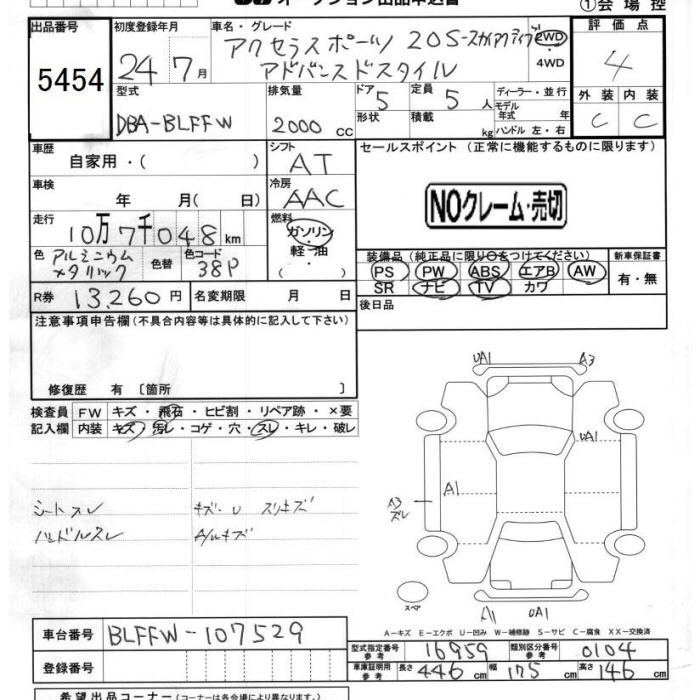 オークション出品申込書
①会場控
出品番号 初度登録年月 車名・グレード 評価点
5454
24年7月
アクセラスポーツ 20S-スカイアクティブ 2WD
アドバンスドスタイル 4WD
4
型式 排気量 ドア 定員 ディーラー・並行
DBA-BLFFW 2000cc 5 5人 モデル年式 年
外装 内装
C C
形状 積載 kg ハンドル 左・右
車歴 自家用・( ) シフト AT
セールスポイント (正常に機能するものに限ります)
車検 年 月( 日) 冷房 AAC
NOクレーム・売切
走行 10万7千048km 燃料 ガソリン・軽油・( )
色 アルミニウムメタリック 色替 色コード 38P
装備品(純正品に限り○をつけてください) 新車保証書
PS PW ABS エアB AW 有・無
SR ナビ TV カワ
R券 13,260円 名変期限 月 日
後日品
注意事項申告欄(不具合内容等は具体的に記入して下さい)
修復歴 有 [箇所 ]
検査員 FW キズ・飛石・ヒビ割・リペア跡・×要
記入欄 内装 キズ・汚レ・コゲ・穴・スレ・キレ・破レ
シートスレ キズ・U スリキズ
ハンドルスレ A/Wキズ
UA1 A3
UA1
A1
A3
ズレ
スペア
A1 UA1
A-キズ E-エクボ U-凹み W-補修跡 S-サビ C-腐食 XX-交換済
車台番号 BLFFW-107529
型式指定番号参考 16959 類別区分番号参考 0104
登録番号
車庫証明用参考 長さ 446cm 幅 175cm 高さ 146cm
希望出品コーナー(コーナーは各会場により異なります。)